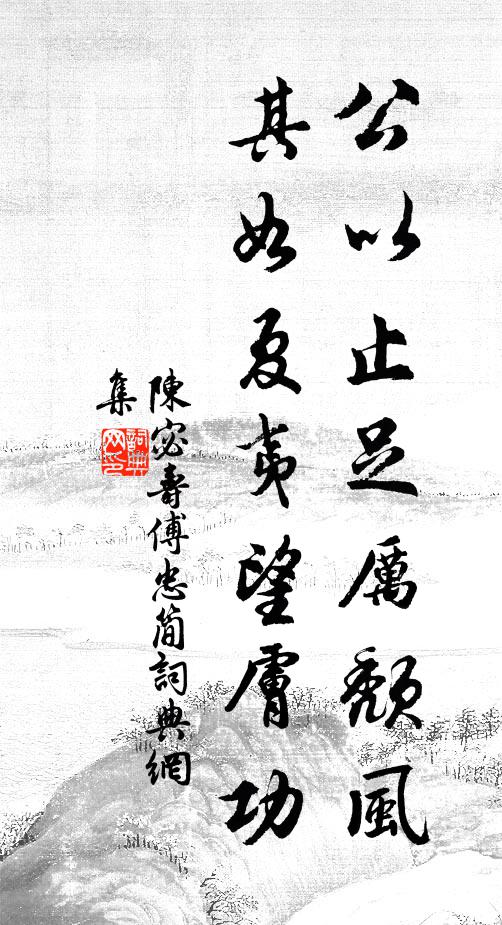 公以止足厲頹風
其如夏夷望膚功
陳宓壽傅忠簡詞典網
集
詞典網印